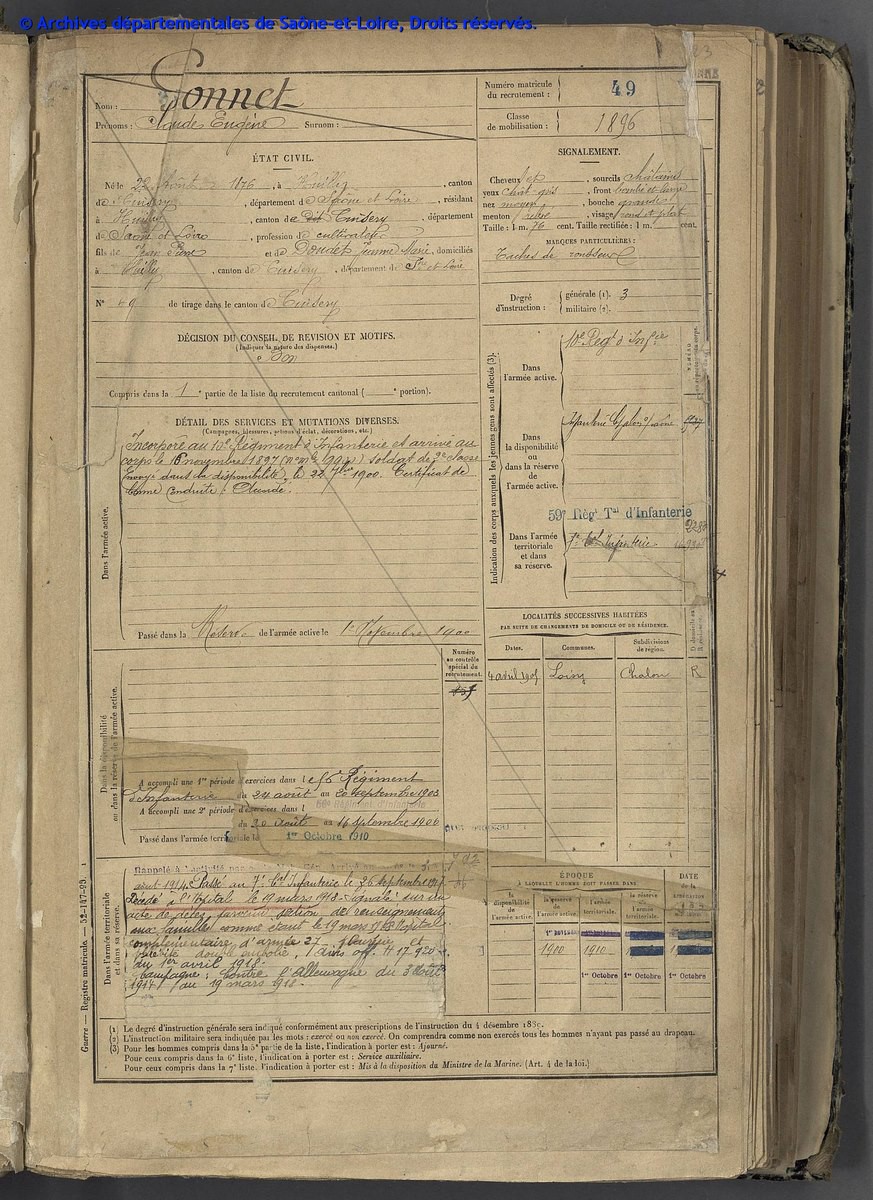 © Archives départementales de Saône-et-Loire, Droits réservés.
Nom : Ponnet
Prénoms : Claude Eugène Surnom :
Numéro matricule du recrutement : 49
Classe de mobilisation : 1896
ÉTAT CIVIL.
Né le 22 Août 1876, à Huilly, canton
de Cuisery, département de Saône et Loire, résidant
à Huilly, canton de Cuisery, département
de Saône et Loire, profession de cultivateur
fils de Jean Pierre et de Jeanne Marie, domiciliés
à Huilly, canton de Cuisery, département de S. et Loire
N° 49 de tirage dans le canton de Cuisery
SIGNALEMENT.
Cheveux et, sourcils châtains
yeux chat-gris, front
nez moyen, bouche grande
menton, visage rond et plat
Taille : 1 m. 76 cent. Taille rectifiée : 1 m. cent.
MARQUES PARTICULIÈRES :
Taches de rousseur
Degré d'instruction : générale (1). 3
militaire (2).
DÉCISION DU CONSEIL DE REVISION ET MOTIFS.
(Indiquer la nature des dispenses.)
Bon
Compris dans la 1e partie de la liste du recrutement cantonal ( e portion).
DÉTAIL DES SERVICES ET MUTATIONS DIVERSES.
(Campagnes, blessures, actions d'éclat, décorations, etc.)
Dans l'armée active.
Incorporé au 10e Régiment d'Infanterie et arrivé au
corps le 16 novembre 1897 soldat de 2e classe
Envoyé dans la disponibilité le 22 7bre 1900. Certificat de
bonne conduite : Accordé.
Passé dans la Réserve de l'armée active le 1er Novembre 1900
Indication des corps auxquels les jeunes gens sont affectés (3).
Dans l'armée active.
10e Regt d'Infie
Dans la disponibilité ou dans la réserve de l'armée active.
Infanterie Chalon s/ Saône
59e Régt Tal d'Infanterie
Dans l'armée territoriale et dans sa réserve.
Infanterie
LOCALITÉS SUCCESSIVES HABITÉES
PAR SUITE DE CHANGEMENTS DE DOMICILE OU DE RÉSIDENCE.
Dates. Communes. Subdivisions de région.
4 avril 1905 Loisy Chalon R
Numéro au contrôle spécial du recrutement.
Dans la disponibilité ou dans la réserve de l'armée active.
A accompli une 1re période d'exercices dans l e 56e Régiment
d'Infanterie du 24 août au 20 septembre 1903
A accompli une 2e période d'exercices dans l 56e Régiment d'Infanterie
du 20 Août au 16 Septembre 1906
Passé dans l'armée territoriale le 1er Octobre 1910
Dans l'armée territoriale et dans sa réserve.
août 1914. Passé au 7e Cal Infanterie le 26 septembre 1917
Décédé à l'hôpital le 19 mars 1918. Signalé sur un
acte de décès section de renseignements
aux familles comme étant le 19 mars 18 hôpital
complémentaire d'armée 27
double embolie, Avis off. H 17.920
du 1er avril 1918.
Campagne : Contre l'Allemagne du 3 Août
1914 au 19 mars 1918.
ÉPOQUE
A LAQUELLE L'HOMME DOIT PASSER DANS
la disponibilité de l'armée active. la réserve de l'armée active. l'armée territoriale. la réserve de l'armée territoriale.
DATE DE LA LIBÉRATION
1900 1910
1er Octobre 1er Octobre 1er Octobre
Guerre — Registre matricule. — 52-147-93.
(1) Le degré d'instruction générale sera indiqué conformément aux prescriptions de l'instruction du 4 décembre 1889.
(2) L'instruction militaire sera indiquée par les mots : exercé ou non exercé. On comprendra comme non exercés tous les hommes n'ayant pas passé au drapeau.
(3) Pour les hommes compris dans la 5e partie de la liste, l'indication à porter est : Ajourné.
Pour ceux compris dans la 6e liste, l'indication à porter est : Service auxiliaire.
Pour ceux compris dans la 7e liste, l'indication à porter est : Mis à la disposition du Ministre de la Marine. (Art. 4 de la loi.)